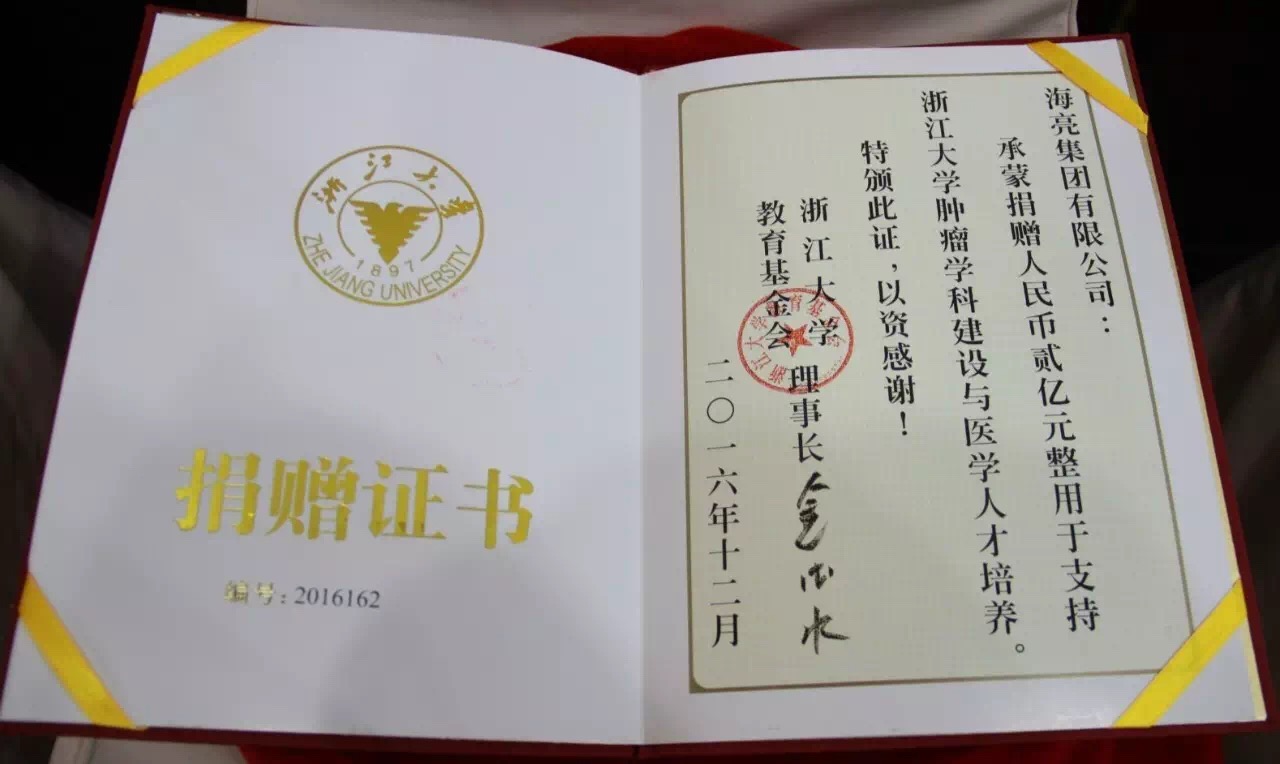 浙江大学
1897
ZHE JIANG UNIVERSITY
捐赠证书
编号:2016162
海亮集团有限公司:
承蒙捐赠人民币贰亿元整用于支持
浙江大学肿瘤学科建设与医学人才培养。
特颁此证,以资感谢!
浙江大学
教育基金会
理事长
二〇一六年十二月